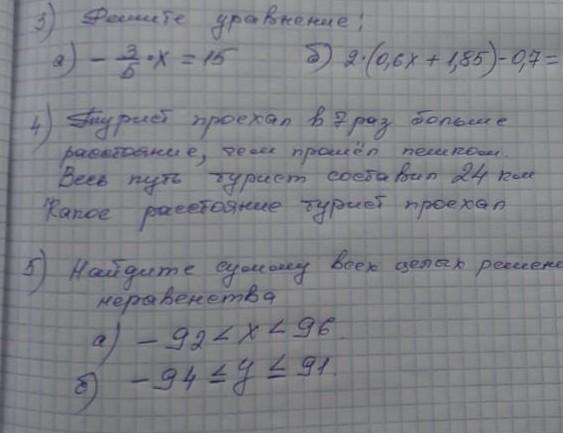 3) Решите уравнение:
а) - 3/5 · x = 15 б) 2·(0,6x + 1,85) - 0,7 =
4) Турист проехал в 7 раз больше
расстояние, чем прошёл пешком.
Весь путь турист составил 24 км
Какое расстояние турист проехал
5) Найдите сумму всех целых решен
неравенства
а) - 92 < x < 96.
б) - 94 ≤ y ≤ 91.